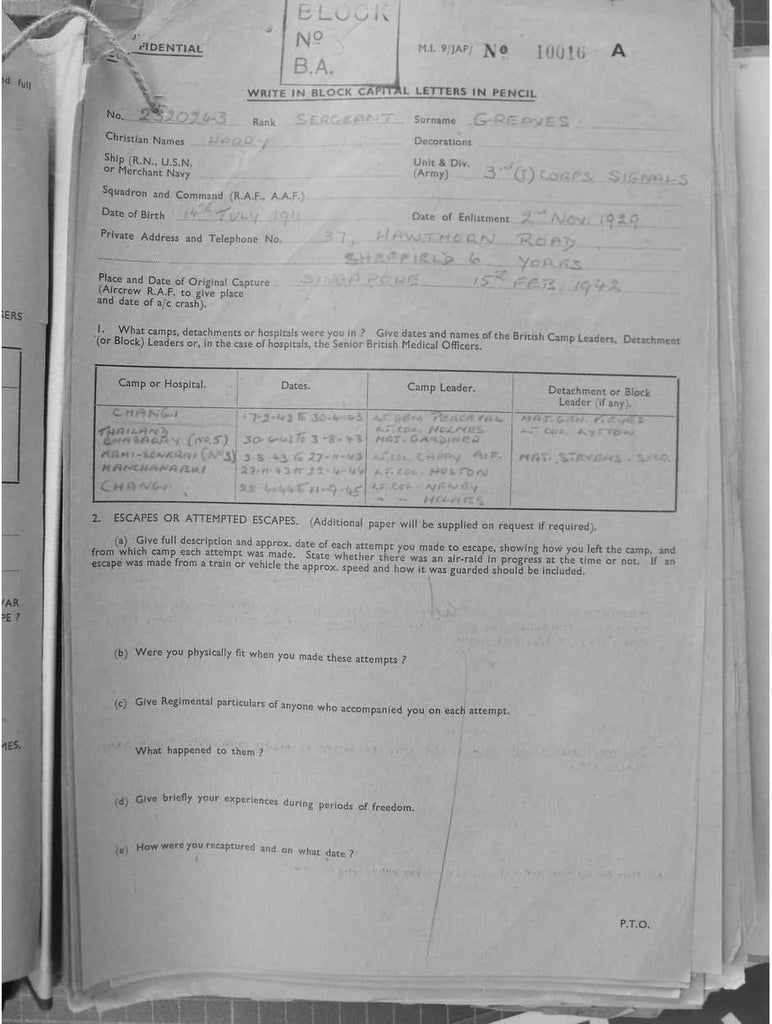 BLOCK
No
B.A.
FIDENTIAL
M.I. 9/JAP/ No 10016 A
WRITE IN BLOCK CAPITAL LETTERS IN PENCIL
No. Rank SERGEANT Surname GREAVES
Christian Names HARRY Decorations
Ship (R.N., U.S.N. or Merchant Navy
Unit & Div. (Army) 3rd (I) CORPS SIGNALS
Squadron and Command (R.A.F., A.A.F.)
Date of Birth 14th JULY 1911 Date of Enlistment 2nd NOV. 1929
Private Address and Telephone No. 37, HAWTHORN ROAD
SHEFFIELD 6 YORKS
Place and Date of Original Capture SINGAPORE 15TH FEB. 1942
(Aircrew R.A.F. to give place
and date of a/c crash).
1. What camps, detachments or hospitals were you in ? Give dates and names of the British Camp Leaders, Detachment
(or Block) Leaders or, in the case of hospitals, the Senior British Medical Officers.
Camp or Hospital. Dates. Camp Leader. Detachment or Block Leader (if any).
CHANGI 17-2-42 To 30-4-43 LT. GEN PERCIVAL MAJ. GEN. KEYES
THAILAND LT. COL HOLMES
(No 5) 30-4-43 To 3-8-43 MAJ. GARDINER LT COL LYTTON
KAMI-SONKRAI (No 3) 3-8-43 To 27-11-43 LT COL A.I.F. MAJ. STEVENS. S.M.O.
KANCHANABURI 27-11-43 To LT. COL. HUSTON
CHANGI To 11-9-45 LT. COL.
" " HOLMES
2. ESCAPES OR ATTEMPTED ESCAPES. (Additional paper will be supplied on request if required).
(a) Give full description and approx. date of each attempt you made to escape, showing how you left the camp, and
from which camp each attempt was made. State whether there was an air-raid in progress at the time or not. If an
escape was made from a train or vehicle the approx. speed and how it was guarded should be included.
(b) Were you physically fit when you made these attempts ?
(c) Give Regimental particulars of anyone who accompanied you on each attempt.
What happened to them ?
(d) Give briefly your experiences during periods of freedom.
(e) How were you recaptured and on what date ?
P.T.O.